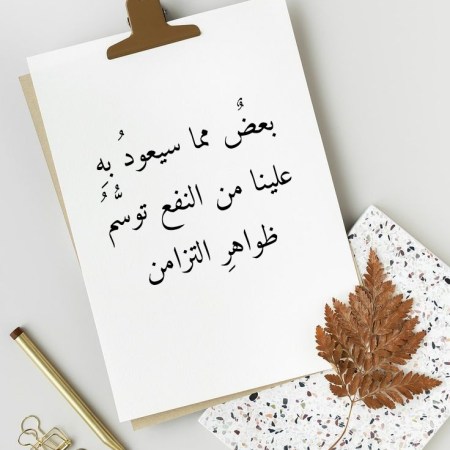 بعضٌ مما سيعودُ بهِ
علينا من النفع توسُّمُ
ظواهرِ التزامن